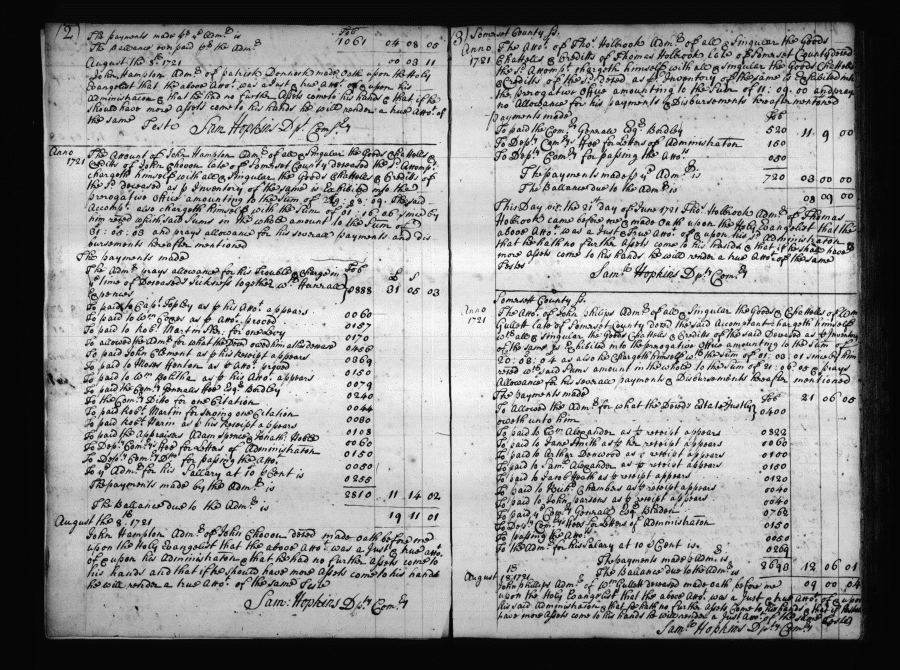 (2)
The payments made by ye Admr is 1061 04 08 05
The Ballance over paid by the Admr 00 03 11
August the 8th 1721
John Hampton Admr of patrick Donnock made Oath upon the Holy
Evangelist that the above Acct. was a Just & true Acct. of & upon his
Administracon & that he had no further Assets come to his hands & that if he
should have more Assets come to his hands he will render a true Acct. of
the same
Teste Sam Hopkins Dpty Comry
Anno 1721
The Account of John Hampton Admr of all & singular the Goods Chattells &
Credits of John late of Somerset County deceased the sd Accompt
chargeth himself with all & singular the Goods Chattells & Credits of
the sd deceased as p Inventory of the same is Exhibited into the
prerogative office amounting to the sum of 29:08:09 The said
Accompt. also chargeth himself with the sum of 01:16:06 since by
him reced which said sums in the whole amount to the sum of
31:05:03 and prayes allowance for his severall payments and dis
bursements hereafter mentioned
The payments made
The Admr prays allowance for his Trouble & Charge in
ye time of Deceaseds Sickness together wth Funerall
Expences 0888 31 05 03
To paid to Capt. as p his Acct. appears 0060
To paid to Wm as p Acct. proved 0157
To paid to Robt. Martin for one Levy 0170
To allowed the Admr for what the Decd owed him as the decease 0456
To paid John Clement as p his Receipt appears 0369
To paid to Hosea Honton as p Acct. proved 0150
To paid to Wm as p his Acct. appears 0079
To paid the Comry Generall Esqr Bordley 0240
To the Comry Ditto for one Citation 0044
To paid Robt. Martin for serving one Citation 0080
To paid Robt. Harris as p his Receipt appears 0108
To paid the Appraisers Adam Spence & Jonath. Nobel 0060
To Depty Comrys Fees for Letters of Administration 0150
To Depty Comry Do for passing the Acct. 0050
To ye Admr for his Sallary at 10 p Cent is 0255
The payments made by the Admr is 2810 11 14 02
The Ballance due to the Admr is 19 11 01
August the 8th 1721
John Hampton Admr of John deced made oath before me
upon the Holy Evangelist that the above Acct. was a Just & true Acct.
of & upon his Administracon & that he had no further Assets come to
his hands and that if he should have more Assets come to his hands
he will render a true Acct. of the same Teste
Sam: Hopkins Dpty Comry
(3)
Somerset County ss.
Anno 1721
The Acct. of Thos. Holbrook Admr of all & Singular the Goods
Chattells & Credits of Thomas Holbrook late of Somerset County deced
the sd Accompt chargeth himself with all & singular the Goods Chattells
& Credits of the sd Deced as p Inventory of the same is Exhibited into
the prerogative Office amounting to the Sum of 11:09:00 and prays
an Allowance for his payments & Disbursements hereafter mentioned
payments made
To paid the Comry Generall Esqr Bordley 520 11 9 00
To Depty Comry Fees for Letters of Administration 150
To Depty Comry for passing the Acct. 050
The payments made p ye Admr is 720 03 00 00
The Ballance due to the Admr is 08 09 00
This Day viz. the 21st Day of June 1721 Thos. Holbrook Admr of Thomas
Holbrook came before me & made Oath upon the Holy Evangelist that the
above Acct. was a Just & True Acct. of & upon his sd Administration
that he hath no further Assets come to his Hands & that if he shall have
more Assets come to his hands he will render a true Acct. of the same
Testes
Saml. Hopkins Dpty Comry
Somerset County ss.
Anno 1721
The Acct. of John philips Admr of all & singular the Goods & Chattells of Wm
Gullett late of Somerset County deced the said Accomptant chargeth himself
with all & singular the Goods Chattells & Credits of the said Deceased as p Inventory
of the same is Exhibited into the prerogative Office amounting to the sum of
20:05:04 as also he Chargeth himself wth the sum of 01:00:01 since by him
reced wch said Sums amount in the whole to the Sum of 21:06:05 & prays
Allowance for his severall payments & Disbursments hereafter mentioned
The payments made 21 06 05
To Allowed the Admr for what the Deceds Estate Justly
oweth unto him 0400
To paid to Wm Alexander as p receipt appears 0322
To paid to Jane Smith as p her receipt appears 0060
To paid to Arthur Denwood as p receipt appears 0100
To paid to Saml. Alexander as p receipt appears 0150
To paid to Jacob Heath as p receipt appears 0120
To paid to Richd Chambers as p receipt appears 0040
To paid to John parsons as p receipt appears 0040
To paid ye Comry Generall Esqr Bladen 0762
To Depty Comry Fees for Letters of Administration 0150
To passing the Acct. 0050
To the Admr for his Salary at 10 p Cent is 0264
The payments made p Admr is 2698 12 06 01
The Ballance due to the Admr is 09 00 04
August 18th 1721
John phillips Admr of Wm Gullett deceased made oath before me
upon the Holy Evangelist that the above Acct. was a Just & true Acct. of & upon
his said Administration & that he hath no further Assets come to his hands & that if he should
have more Assets come to his hands he will render a Just Acct. of the same Teste
Saml. Hopkins Dpty Comry